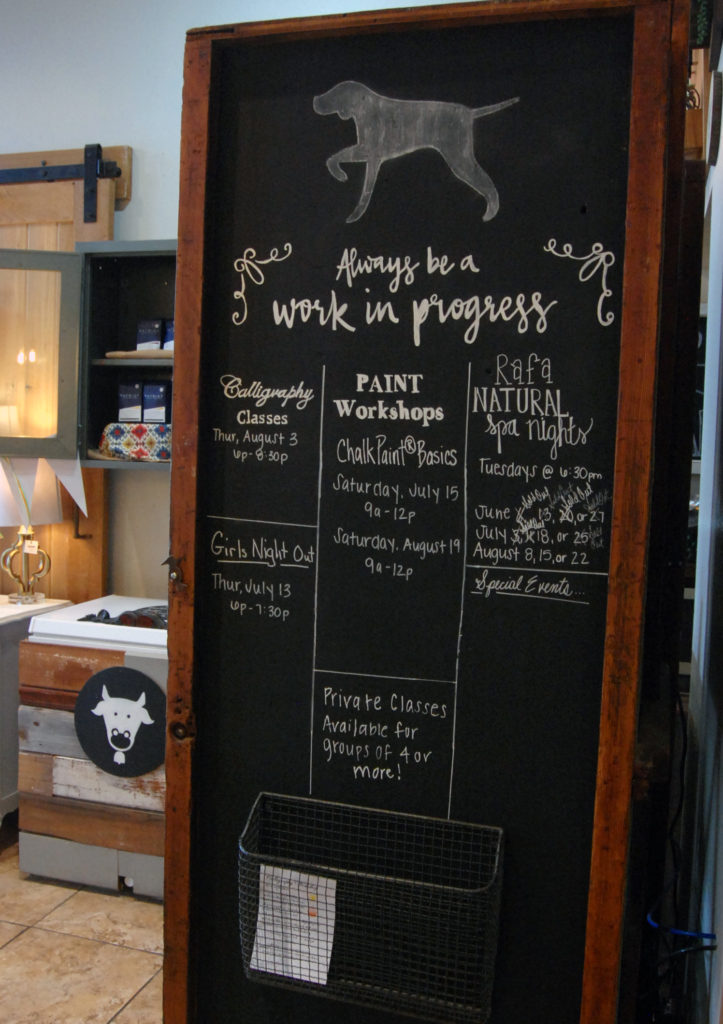 Always be a
work in progress
Calligraphy
Classes
Thur, August 3
6p-8:30p
Girls Night Out
Thur, July 13
6p-7:30p
PAINT
Workshops
ChalkPaint® Basics
Saturday, July 15
9a-12p
Saturday, August 19
9a-12p
Private Classes
Available for
groups of 4 or
more!
Rafa
NATURAL
spa nights
Tuesdays @ 6:30pm
June 13, 20, or 27
July 18, or 25
August 8, 15, or 22
Special Events...